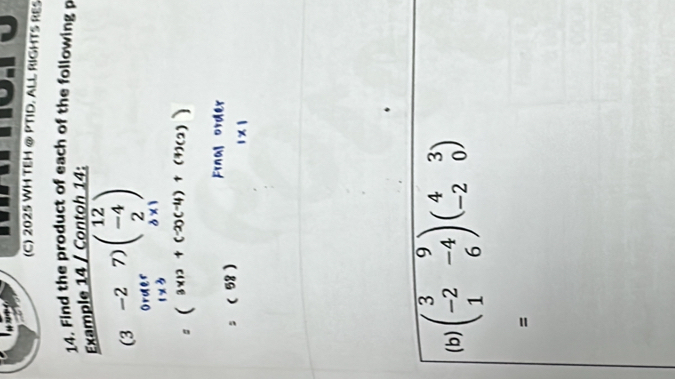 (C) 2025 WH TEH @ PTID. ALL RIGHTS RES
14. Find the product of each of the following p
Example 14 / Contoh 14:
(3 -2 7)(12
-4
2)
Order
1x3
3x1
= ( 3x12 + (-2)(-4) + (7)(2) )
= ( 58 )
Final order
1x1
(b) (3 9
-2 -4
1 6)(4 3
-2 0)
=